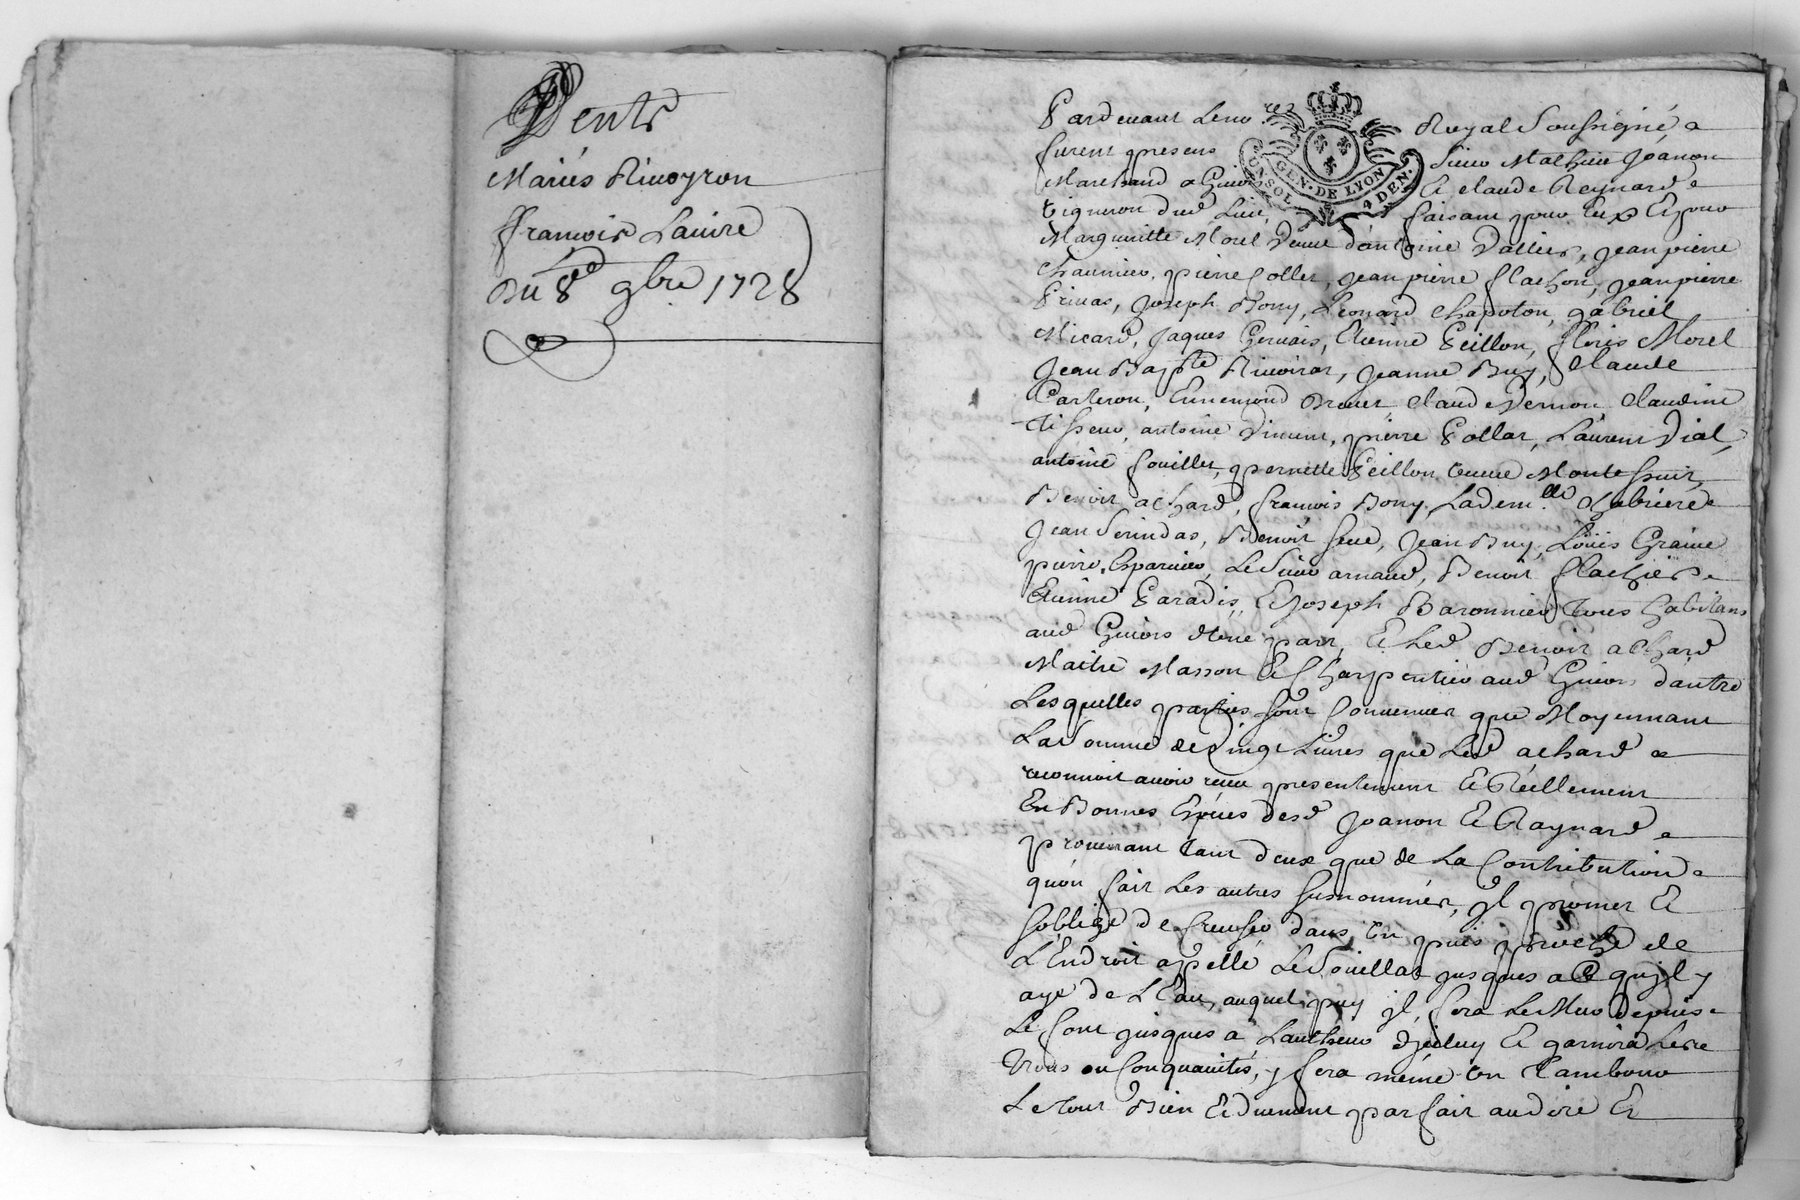 Vente
Mariés Rivoyron
françois Laivre
Du 8e 9bre 1728
Pardevant Le no.re Royal Soussigné
furent presens Sieur Mathieu Joanon
Marchand a Givors Et claude Reynard
Vigneron dud Lieu, faisant pour Eux Et pour
Margueritte Morel Veuve d'antoine Vallier, jean pierre
Chaumier, pierre Collet, jean pierre flachon, jean pierre
Privas, Joseph Bony, Leonard Chapoton, gabriel
Micard, Jaques Gervais, Etienne Peillon, floris Morel
Jean Bapte Rivoirat, jeanne Buy, Claude
Carteron, Ennemond claude Vernon, Claudine
Tisseur, antoine Vincent, pierre Pollat, Laurent Vial,
antoine fouillet, pernette Peillon veuve
Benoit achard, françois Bony, La dem.lle Chabriere
Jean Serindat, Benoit seve, Jean Buy, Loüis
pierre Esparcieu, Le Sieur arnaud, Benoit flachier
Etienne Paradis, Et Joseph Baronnier tous habitans
aud Givors d'une part, Et led Benoit achard
Maitre Masson Et Charpentier aud Givors d'autre
Lesquelles parties sont Convenues que Moyennant
La Somme de Vingt Livres que Led achard
reconnoit avoir reçu presentement Et Réellement
En Bonnes Espéces desd Joanon Et Raynard
provenant tant d'eux que de La Contribution
qu'on fait Les autres susnommés, jl promet Et
s'oblige de Creuser dans un puis proche de
L'Endroit apellé Le Souillat jusques a Ce qu'jl y
aye de L'Eau, auquel puy jl fera Le Mur Depuis
Le font jusques a Lautheur d'jceluy Et garnira Les
trous ou Conquavités, y fera méme un Tambour
Le tout Bien Et duement parfait audire Et
GEN · DE LYON
4 DEN.